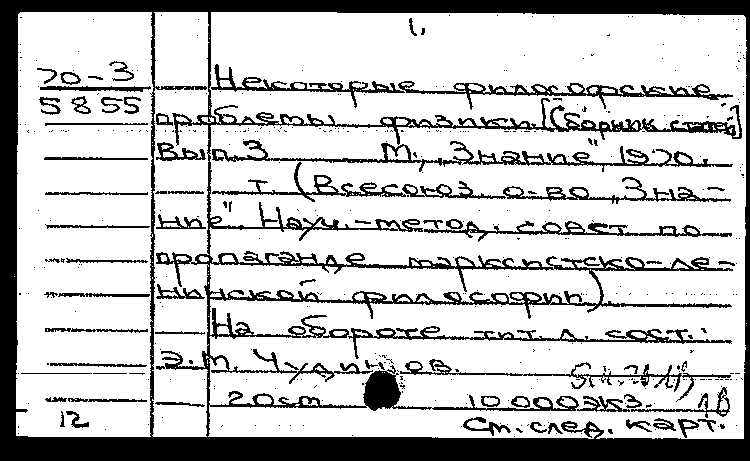 1.
70-3
Некоторые философские
5855
проблемы физики. [Сборник статей]
Вып. 3 М., „Знание", 1970.
т. (Всесоюз. о-во „Зна-
ние". Науч.-метод. совет по
пропаганде марксистско-ле-
нинской философии).
На обороте тит. л. сост.:
Э. М. Чудинов.
20 см 10 000 экз. 1В
12
См. след. карт.